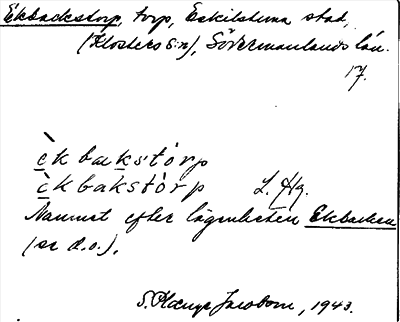 Ekbackstorp, torp, Eskilstuna stad,
(Klosters s:n), Södermanlands län.
17.
èk bakstórp
èkbakstórp L. Hg.
Namnet efter lägenheten Ekbacken
(se d.o.).
S. Jacobson, 1943.